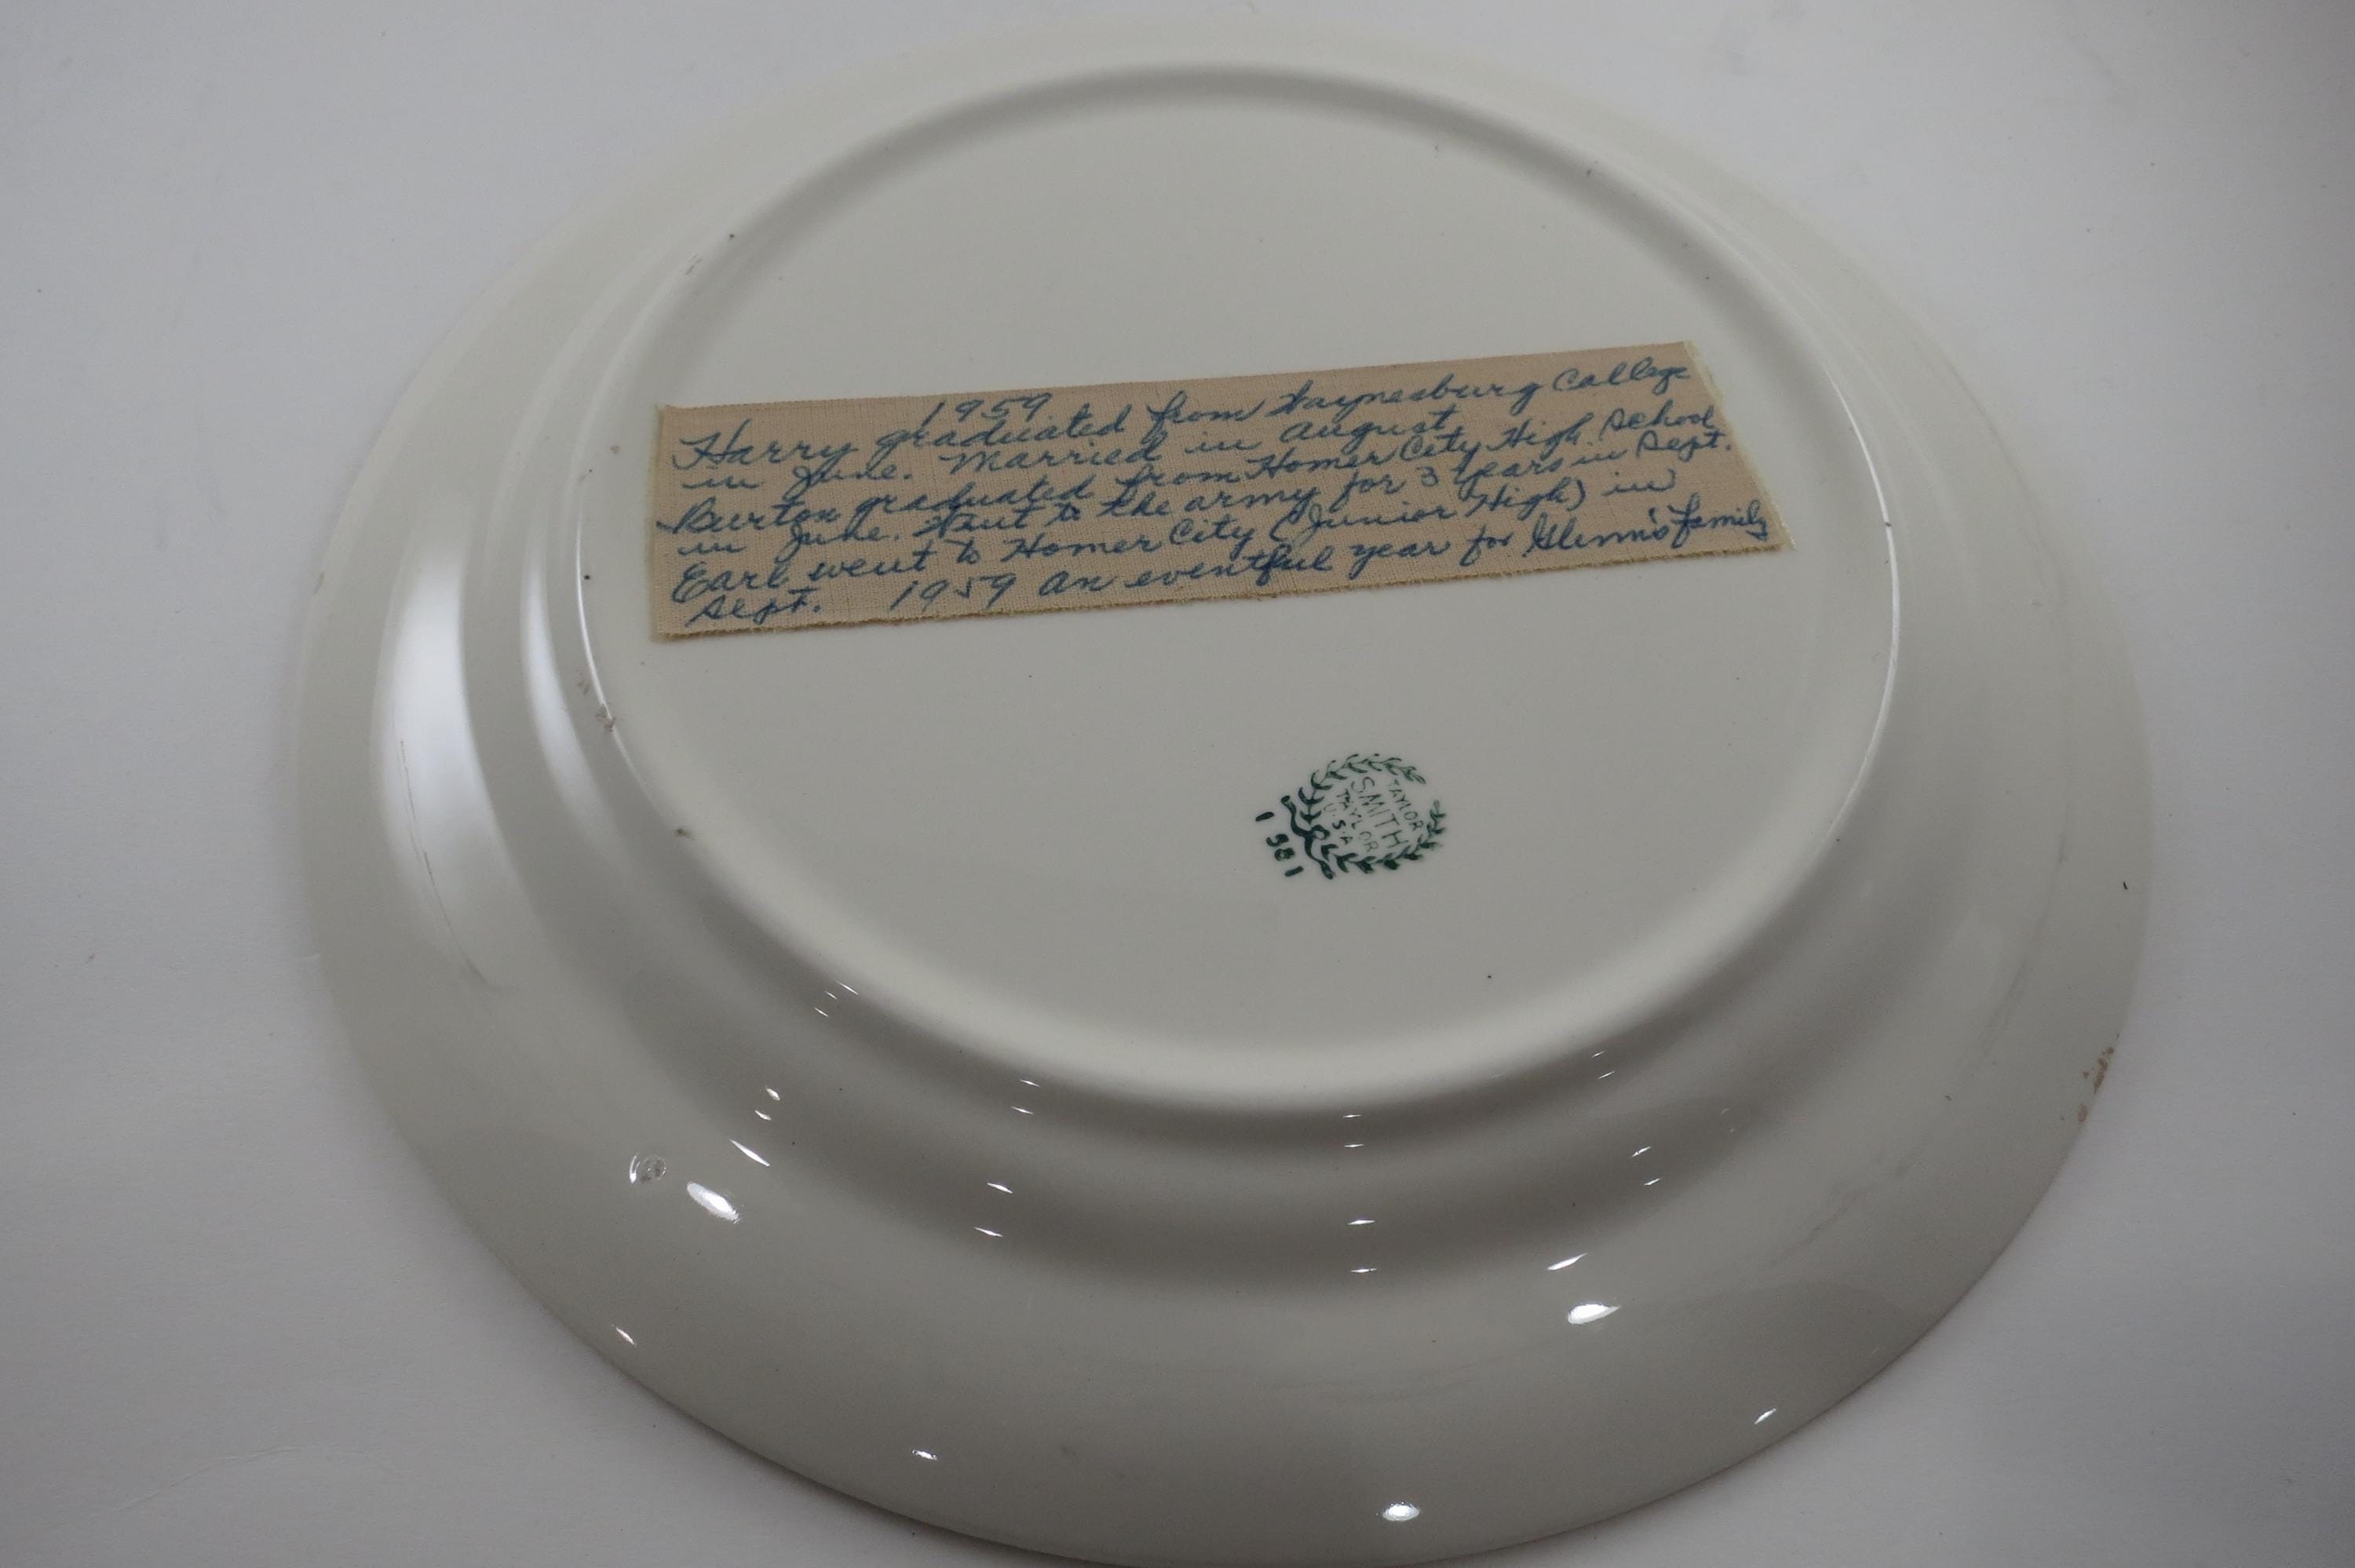 1959
Harry graduated from Waynesburg College
in June. Married in August
Burton graduated from Homer City High School
in June. Went to the army for 3 years in Sept.
Earl went to Homer City (Junior High) in
Sept. 1959 an eventful year for Glenn's family
TAYLOR
SMITH
TAYLOR
U.S.A
1 58 1